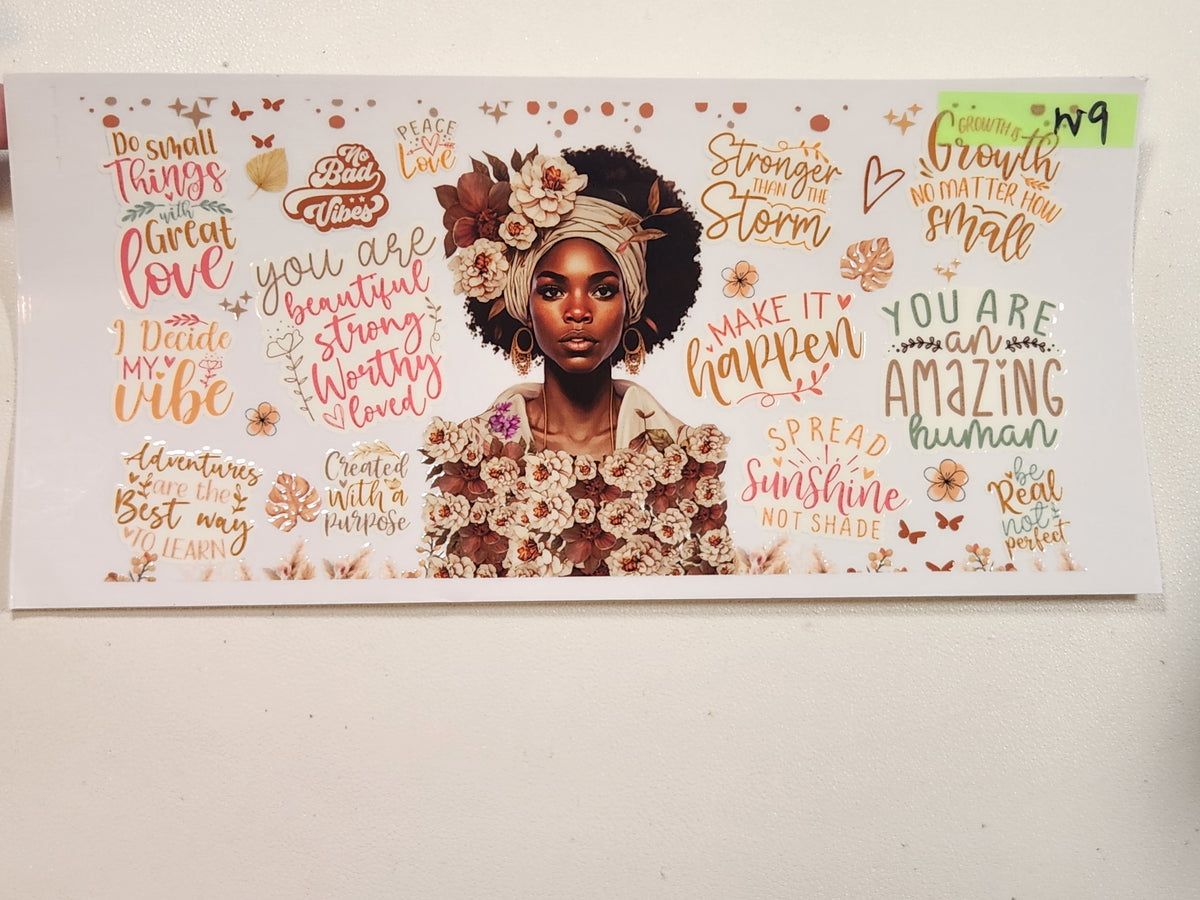 Do small
Things
with
Great
love
No
Bad
Vibes
PEACE
Love
you are
beautiful
strong
Worthy
loved
I Decide
MY
vibe
Adventures
are the
Best way
TO LEARN
Created
with a
purpose
Stronger
THAN THE
Storm
N9
GROWTH IS
Growth
NO MATTER HOW
small
MAKE IT
happen
YOU ARE
an
AMAZING
human
SPREAD
Sunshine
NOT SHADE
be
Real
not
perfect